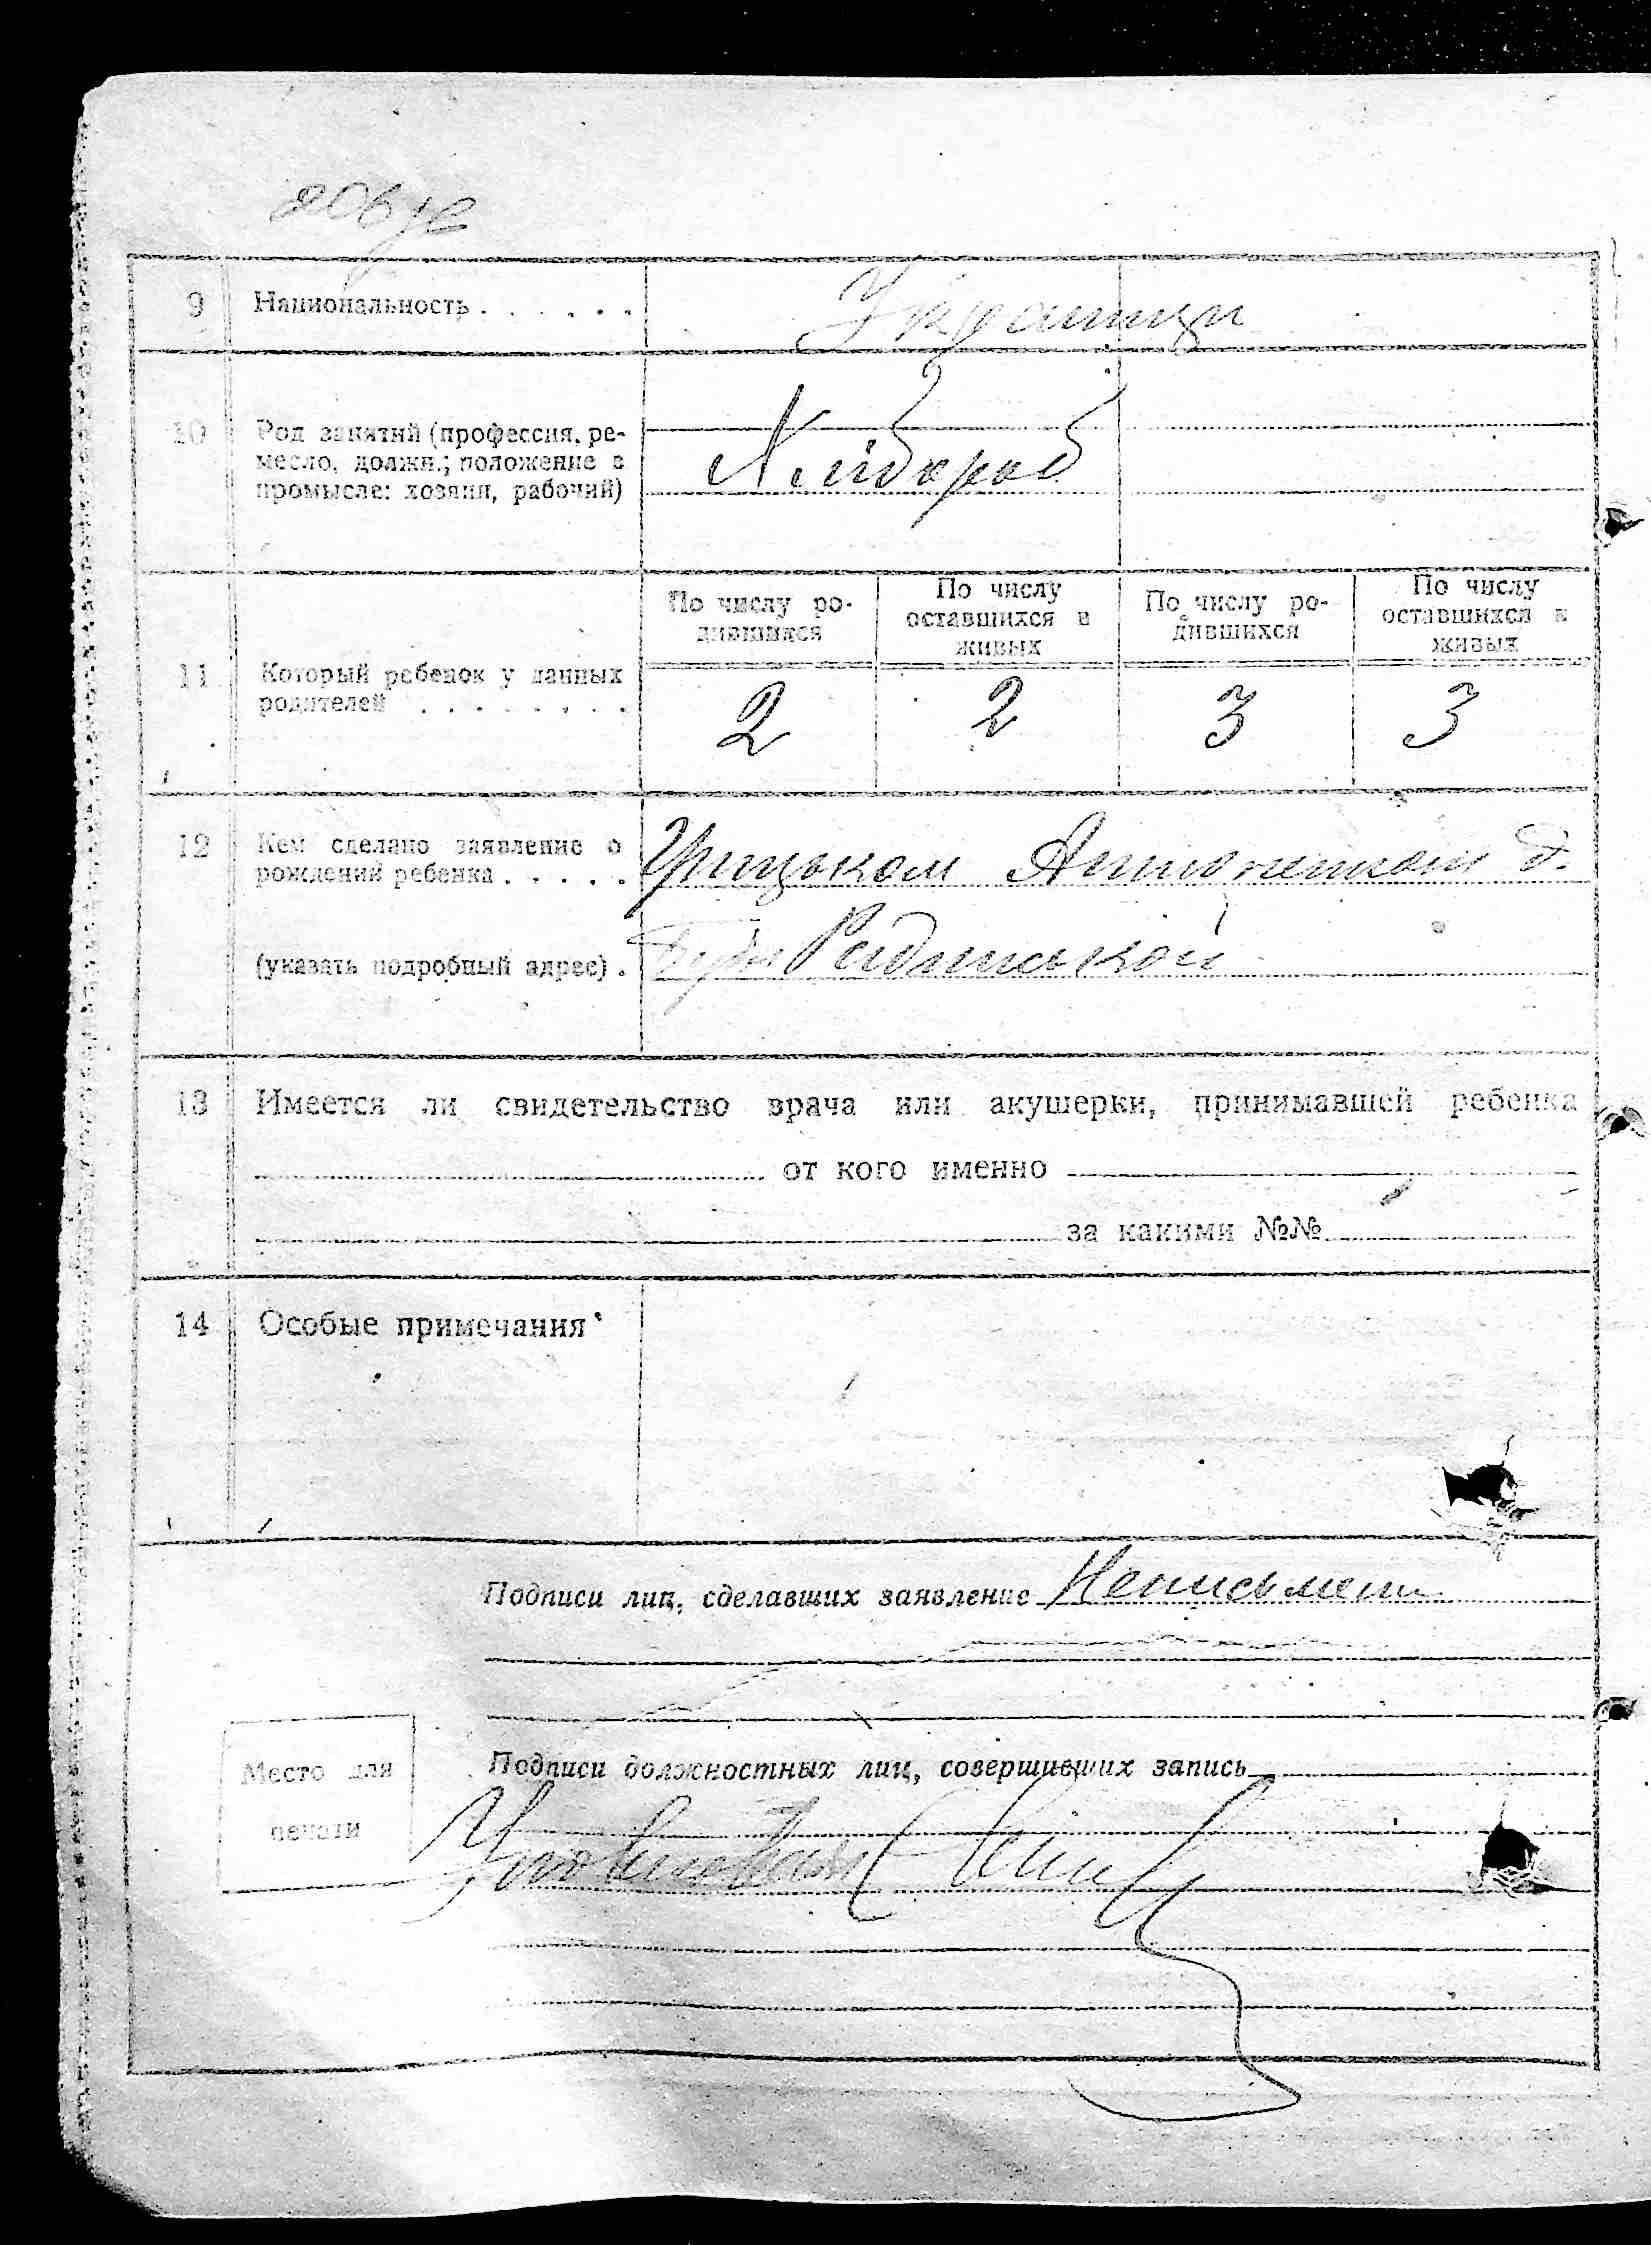 9 Национальность . . . . . .
Українци
10 Род занятий (профессия, ре-
месло, должн.; положение в
промысле: хозяин, рабочий)
Хлібороб
По числу ро-
дившихся
По числу
оставшихся в
живых
По числу ро-
дившихся
По числу
оставшихся в
живых
11 Который ребенок у данных
родителей . . . . . . . .
2 2 3 3
12 Кем сделано заявление о
рождении ребенка . . . . .
Грицьком
(указать подробный адрес) .
13 Имеется ли свидетельство врача или акушерки, принимавшей ребенка
от кого именно
за какими №№
14 Особые примечания
Подписи лиц, сделавших заявление Неписьмен
Подписи должностных лиц, совершивших запись
Место для
печати